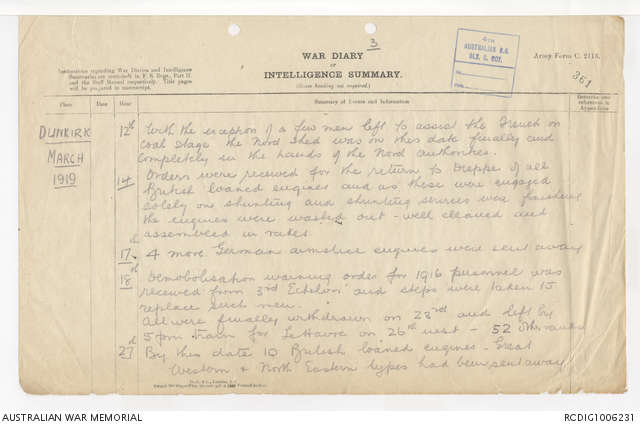 3
WAR DIARY
or
INTELLIGENCE SUMMARY.
(Erase heading not required.)
Instructions regarding War Diaries and Intelligence
Summaries are contained in F. S. Regs., Part II.
and the Staff Manual respectively. Title pages
will be prepared in manuscript.
4TH
AUSTRALIAN B.G.
RLY. O. COY.
Army Form C. 2118.
361
Place
Date
Hour
Summary of Events and Information
Remarks and
references to
Appendices
DUNKIRK
MARCH
1919
12th With the exception of a few men left to assist the French on
coal stage the Nord Shed was on this date finally and
completely in the hands of the Nord authorities.
14 Orders were received for the return to Dieppe of all
British loaned engines and as these were engaged
solely on shunting and shunting services were finishing
the engines were washed out - well cleaned and
assembled in rakes
17th 4 more German armistice engines were sent away
18th Demobolisation warning order for 1916 personnel was
received from 3rd Echelon and steps were taken to
replace such men.
All were finally withdrawn on 23rd and left by
5 pm train for Le Havre on 26th - 52 other ranks
27 By this date 10 British loaned engines - Great
Western & North Eastern types had been sent away
AUSTRALIAN WAR MEMORIAL
RCDIG1006231